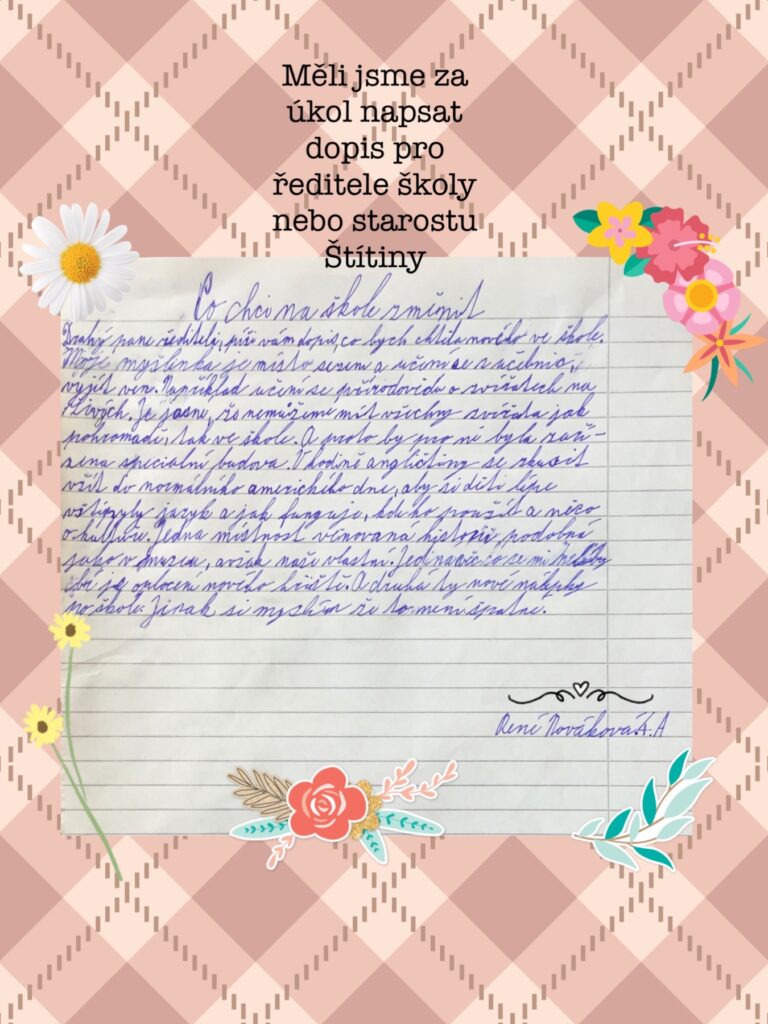 Měli jsme za
úkol napsat
dopis pro
ředitele školy
nebo starostu
Štítiny
Co chci na škole změnit
Drahý pane řediteli, píši vám dopis, co bych chtěla nového ve škole.
Moje myšlenka je místo sezení a učení se z učebnic,
vyjít ven. Například učení se přírodovidu o zvířatech na
živých. Je jasné, že nemůžeme mít všechny zvířata jak
pohromadě, tak ve škole. A proto by pro ně byla zaří-
zena specialní budova. V hodině angličtiny se zkusit
vžít do normálního amerického dne, aby si děti lépe
vštípyly jazyk a jak funguje, kde ho použít a něco
o kultuře. Jedna místnost věnovaná historii, podobná
jako v muzeu, avšak naše vlastní. Jedna věc co se mi
je oplocení nového hřiště. A druhá ty nové nálepky
po škole. Jinak si myslím že to není špatné.
René Nováková 4.A